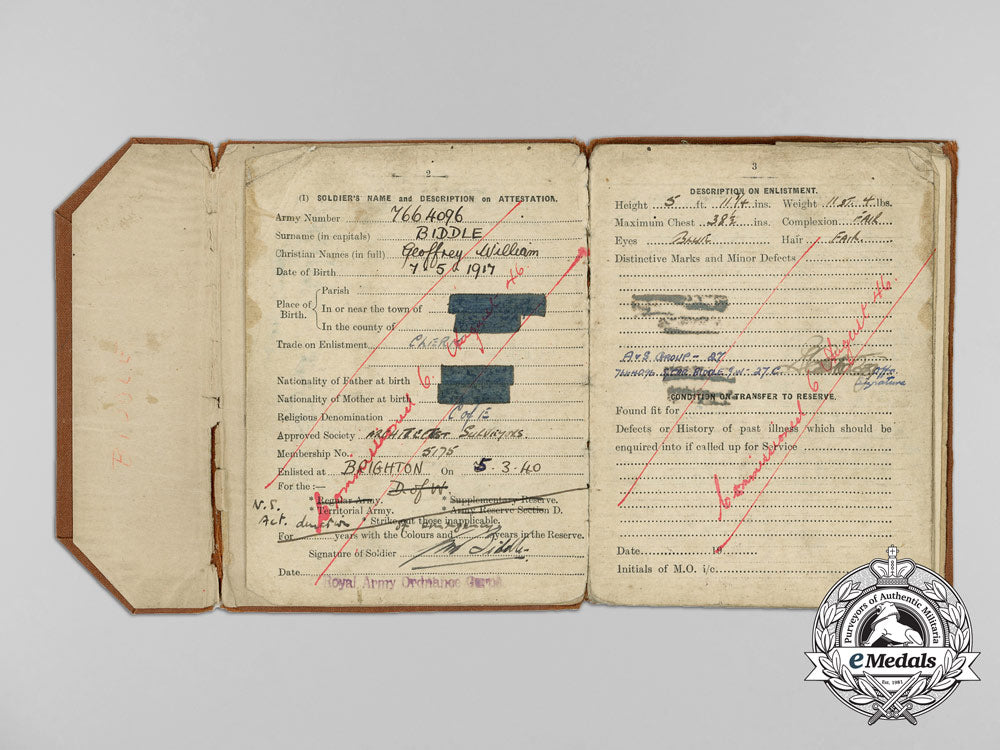 2
(I) SOLDIER'S NAME and DESCRIPTION on ATTESTATION.
Army Number 7664096
Surname (in capitals) BIDDLE
Christian Names (in full) Geoffrey William
Date of Birth 7 5 1917
Place of Birth.
Parish
In or near the town of
In the county of
Trade on Enlistment CLERK
Nationality of Father at birth
Nationality of Mother at birth
Religious Denomination C of E
Approved Society ARCHITECTS SURVEYORS
Membership No. 5175
Enlisted at BRIGHTON On 5.3.40
For the :— D of W
* Regular Army. * Supplementary Reserve.
* Territorial Army. * Army Reserve Section D.
* Strike out those inapplicable.
N.S. Act. duration of emergency
For years with the Colours and years in the Reserve.
Signature of Soldier Biddle
Date
Royal Army Ordnance Corps
Commissioned 6 August 46.
3
DESCRIPTION ON ENLISTMENT.
Height 5 ft. 11¼ ins. Weight 11 ST. 4 lbs.
Maximum Chest 38½ ins. Complexion FAIR
Eyes BLUE Hair FAIR
Distinctive Marks and Minor Defects
A & S GROUP - 27
7664096 BIDDLE G.W. 27 C.
Signature
CONDITION ON TRANSFER TO RESERVE.
Found fit for
Defects or History of past illness which should be
enquired into if called up for Service
Date 19
Initials of M.O. i/c
Commissioned 6 August 46.
Purveyors of Authentic Militaria
eMedals
Est. 1981